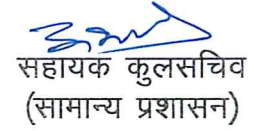 सहायक कुलसचिव
(सामान्य प्रशासन)